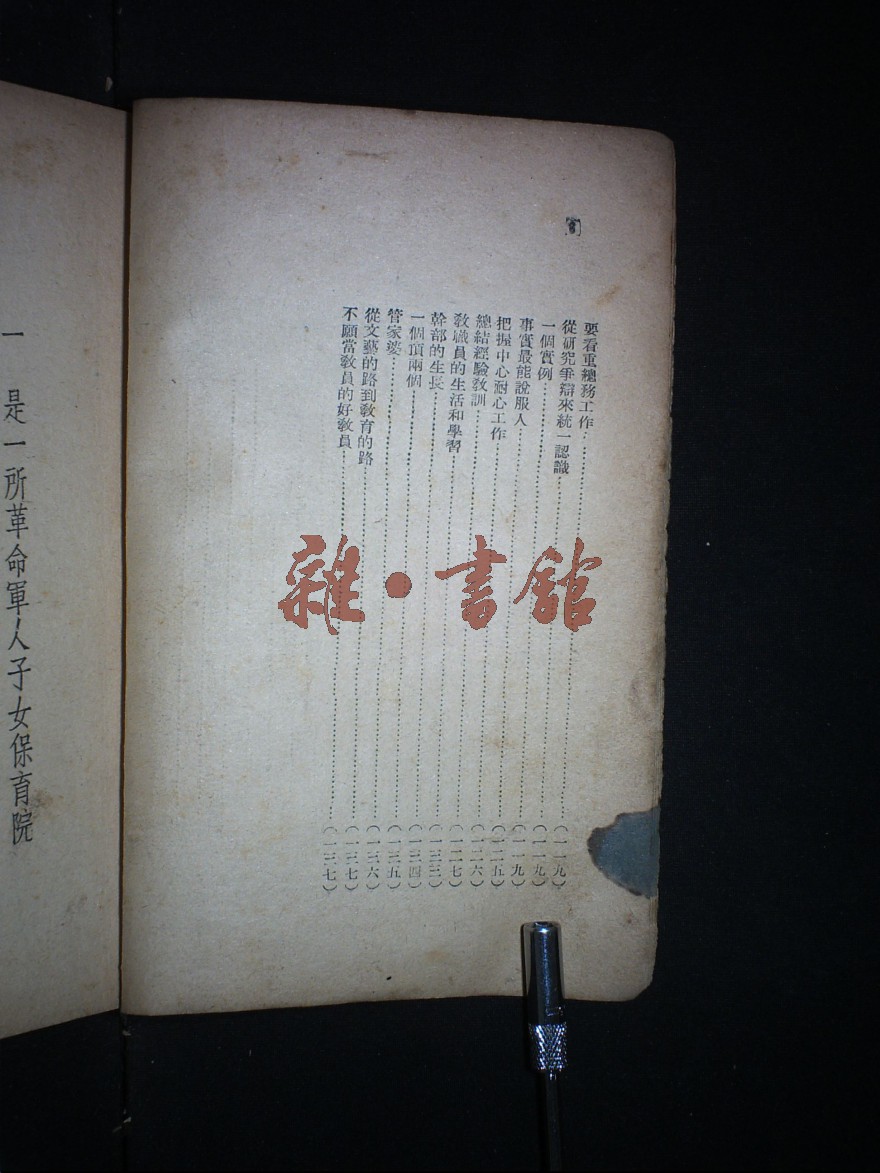 要看重總務工作……(一一九)
從研究爭辯來統一認識……(一一九)
一個實例……(一一九)
事實最能說服人……(一二五)
把握中心耐心工作……(一二六)
總結經驗教訓……(一二七)
教職員的生活和學習……(一三三)
幹部的生長……(一三四)
一個頂兩個……(一三五)
管家婆……(一三六)
從文藝的路到教育的路……(一三七)
不願當教員的好教員……(一三七)
一 是一所革命軍人子女保育院
雜·書館